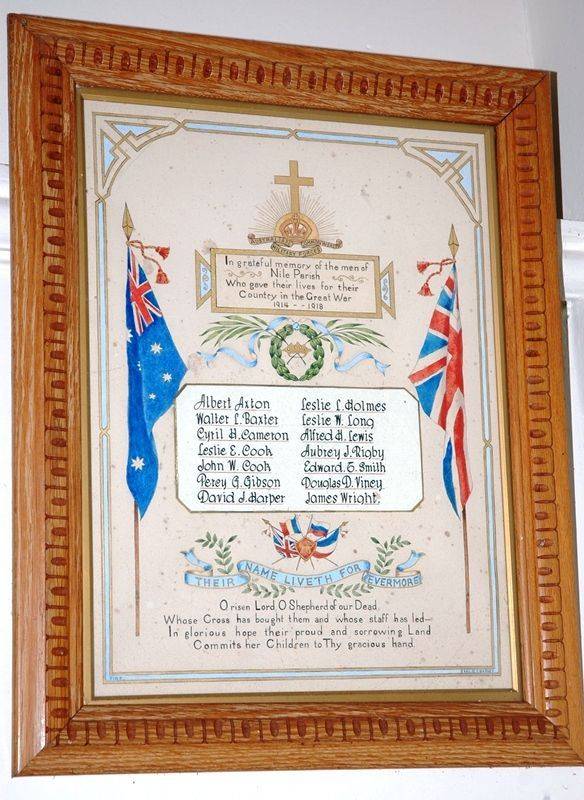 AUSTRALIAN COMMONWEALTH
MILITARY FORCES
In grateful memory of the men of
Nile Parish
Who gave their lives for their
Country in the Great War
1914 - - 1918
Albert Axton
Walter L. Baxter
Cyril H. Cameron
Leslie E. Cook
John W. Cook
Percy G. Gibson
David J. Harper
Leslie L. Holmes
Leslie W. Long
Alfred H. Lewis
Aubrey J. Rigby
Edward S. Smith
Douglas D. Viney
James Wright.
THEIR NAME LIVETH FOR EVERMORE
O risen Lord, O Shepherd of our Dead,
Whose Cross has bought them and whose staff has led—
In glorious hope their proud and sorrowing Land
Commits her Children to Thy gracious hand.